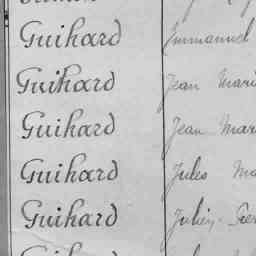 Guihard Emmanuel
Guihard Jean Mari
Guihard Jean Mar
Guihard Jules Ma
Guihard Julien